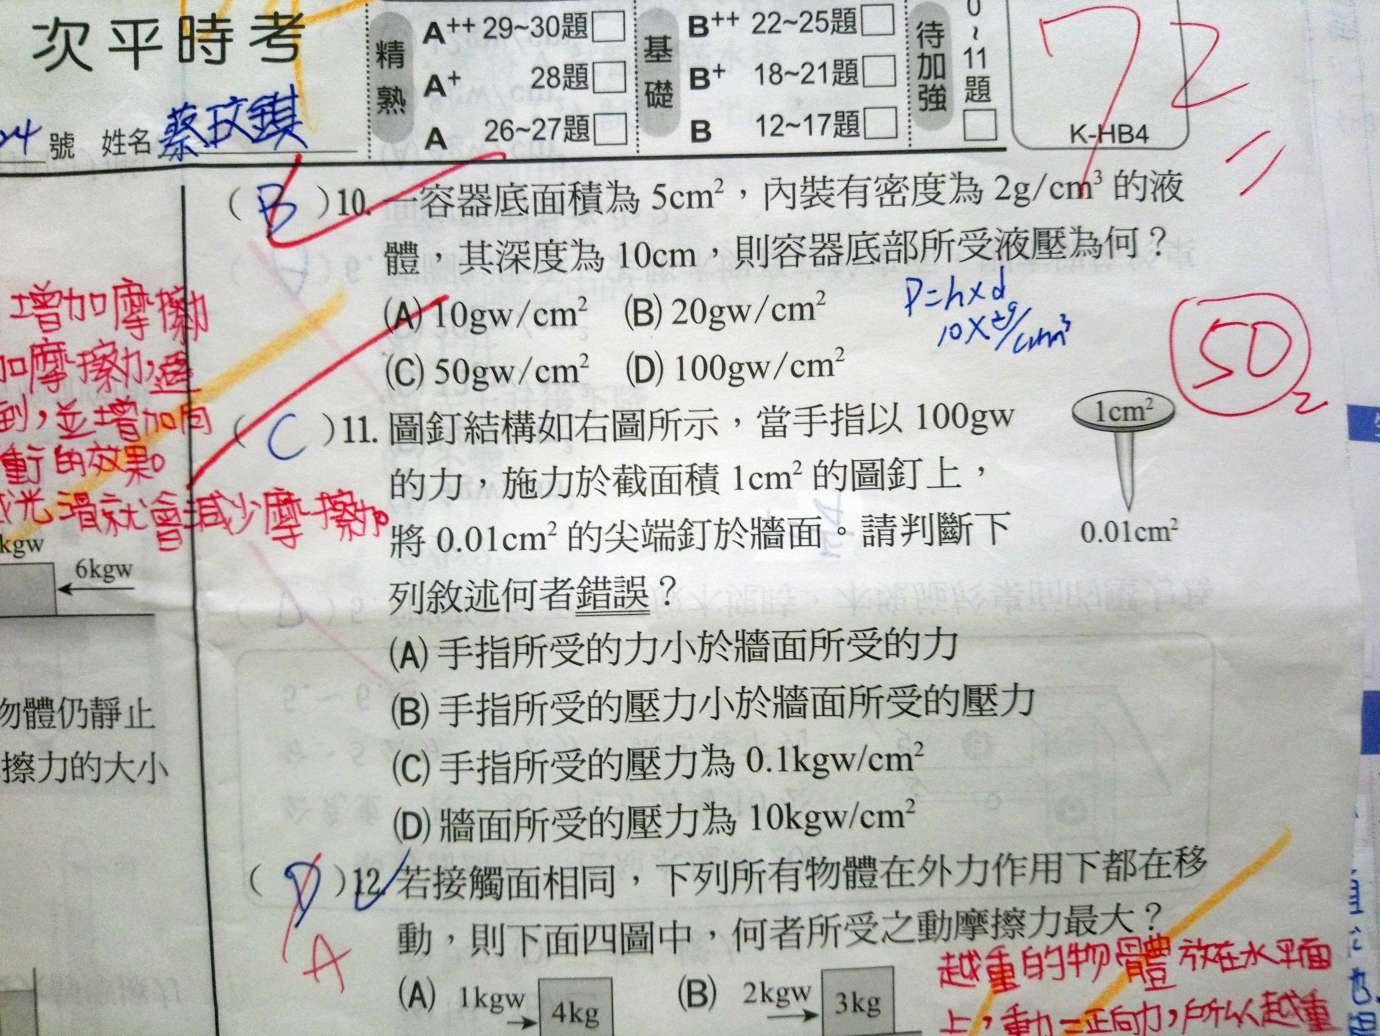 次平時考
精熟
A++ 29~30題
A+ 28題
A 26~27題
基礎
B++ 22~25題
B+ 18~21題
B 12~17題
待加強
0~11題
72
K-HB4
號 姓名 蔡玟鎂
(B)10. 一容器底面積為 5cm²，內裝有密度為 2g/cm³ 的液
體，其深度為 10cm，則容器底部所受液壓為何？
(A) 10gw/cm² (B) 20gw/cm²
(C) 50gw/cm² (D) 100gw/cm²
P=h×d
50
(C)11. 圖釘結構如右圖所示，當手指以 100gw
的力，施力於截面積 1cm² 的圖釘上，
將 0.01cm² 的尖端釘於牆面。請判斷下
列敘述何者錯誤？
1cm²
0.01cm²
(A) 手指所受的力小於牆面所受的力
(B) 手指所受的壓力小於牆面所受的壓力
(C) 手指所受的壓力為 0.1kgw/cm²
(D) 牆面所受的壓力為 10kgw/cm²
(D)12. 若接觸面相同，下列所有物體在外力作用下都在移
動，則下面四圖中，何者所受之動摩擦力最大？
A
(A) 1kgw 4kg (B) 2kgw 3kg
越重的物體放在水平面
增加摩擦力
加摩擦力,
到,並增加
的效果。
光滑就會減少摩擦力。
kgw
6kgw
物體仍靜止
擦力的大小